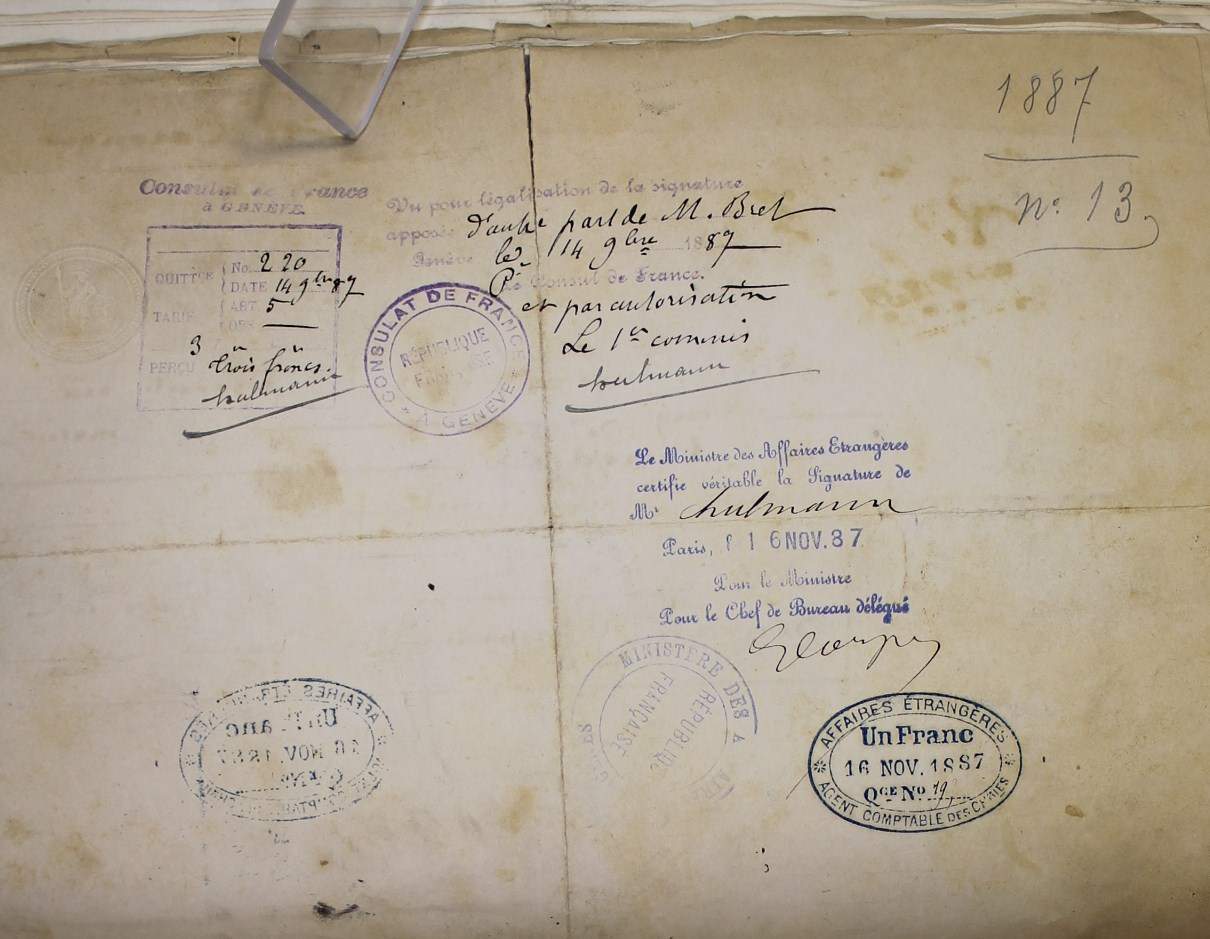 1887
nº 13
Consulat de France
à GENÈVE.
QUITTCE
No 220
DATE 14 9bre 87
TARIF
ART 5
PERÇU
3
trois francs.
Vu pour légalisation de la signature
apposée d'autre part de M. Bret
Genève le 14 9bre 1887
Pr Le Consul de France.
et par autorisation
Le 1er commis
CONSULAT DE FRANCE
À GENÈVE
RÉPUBLIQUE
FRANÇAISE
Le Ministre des Affaires Etrangères
certifie véritable la Signature de
Mr
Paris, l 16 NOV. 87
Pour le Ministre
Pour le Chef de Bureau délégué
MINISTÈRE DES AFF
RÉPUBLIQUE
FRANÇAISE
AFFAIRES ÉTRANGÈRES
Un Franc
16 NOV. 1887
QCE No 19
AGENT COMPTABLE DES CHIES
AFFAIRES ÉTRANGÈRES
Un Franc
16 NOV. 1887